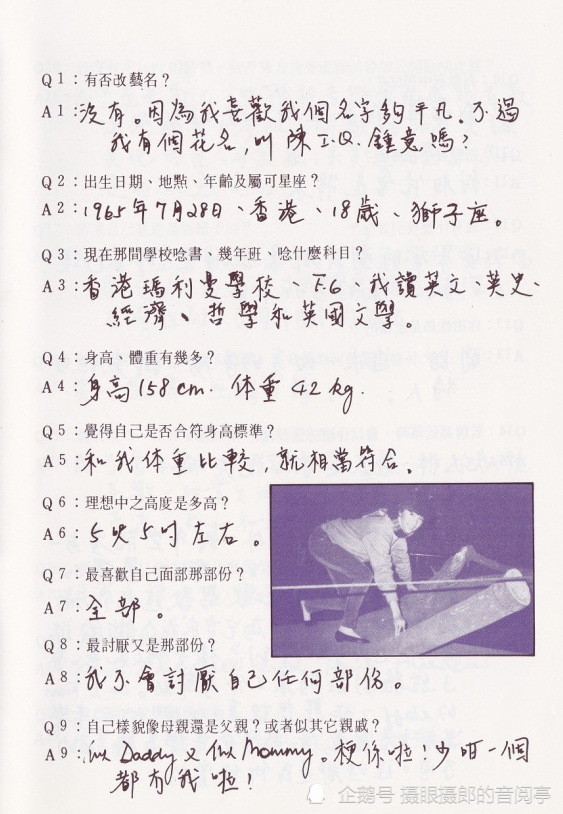 Q1：有否改藝名？
A1：沒有。因為我喜歡我個名字夠平凡。不過
我有個花名，叫陳I.Q.鍾意嗎？
Q2：出生日期、地點、年齡及屬可星座？
A2：1965年7月28日、香港、18歲、獅子座。
Q3：現在那間學校唸書、幾年班、唸什麼科目？
A3：香港瑪利曼學校、F.6 我讀英文、英史、
經濟、哲學和英國文學。
Q4：身高、體重有幾多？
A4：身高158cm. 体重42kg.
Q5：覺得自己是否合符身高標準？
A5：和我体重比較，就相當符合.
Q6：理想中之高度是多高？
A6：5呎5吋左右。
Q7：最喜歡自己面部那部份？
A7：全部。
Q8：最討厭又是那部份？
A8：我不會討厭自己任何部份。
Q9：自己樣貌像母親還是父親？或者似其它親戚？
A9：似Daddy又似Mommy。梗係啦！少咁一個
都冇我啦！
企鹅号 摄眼摄郎的音阅亭